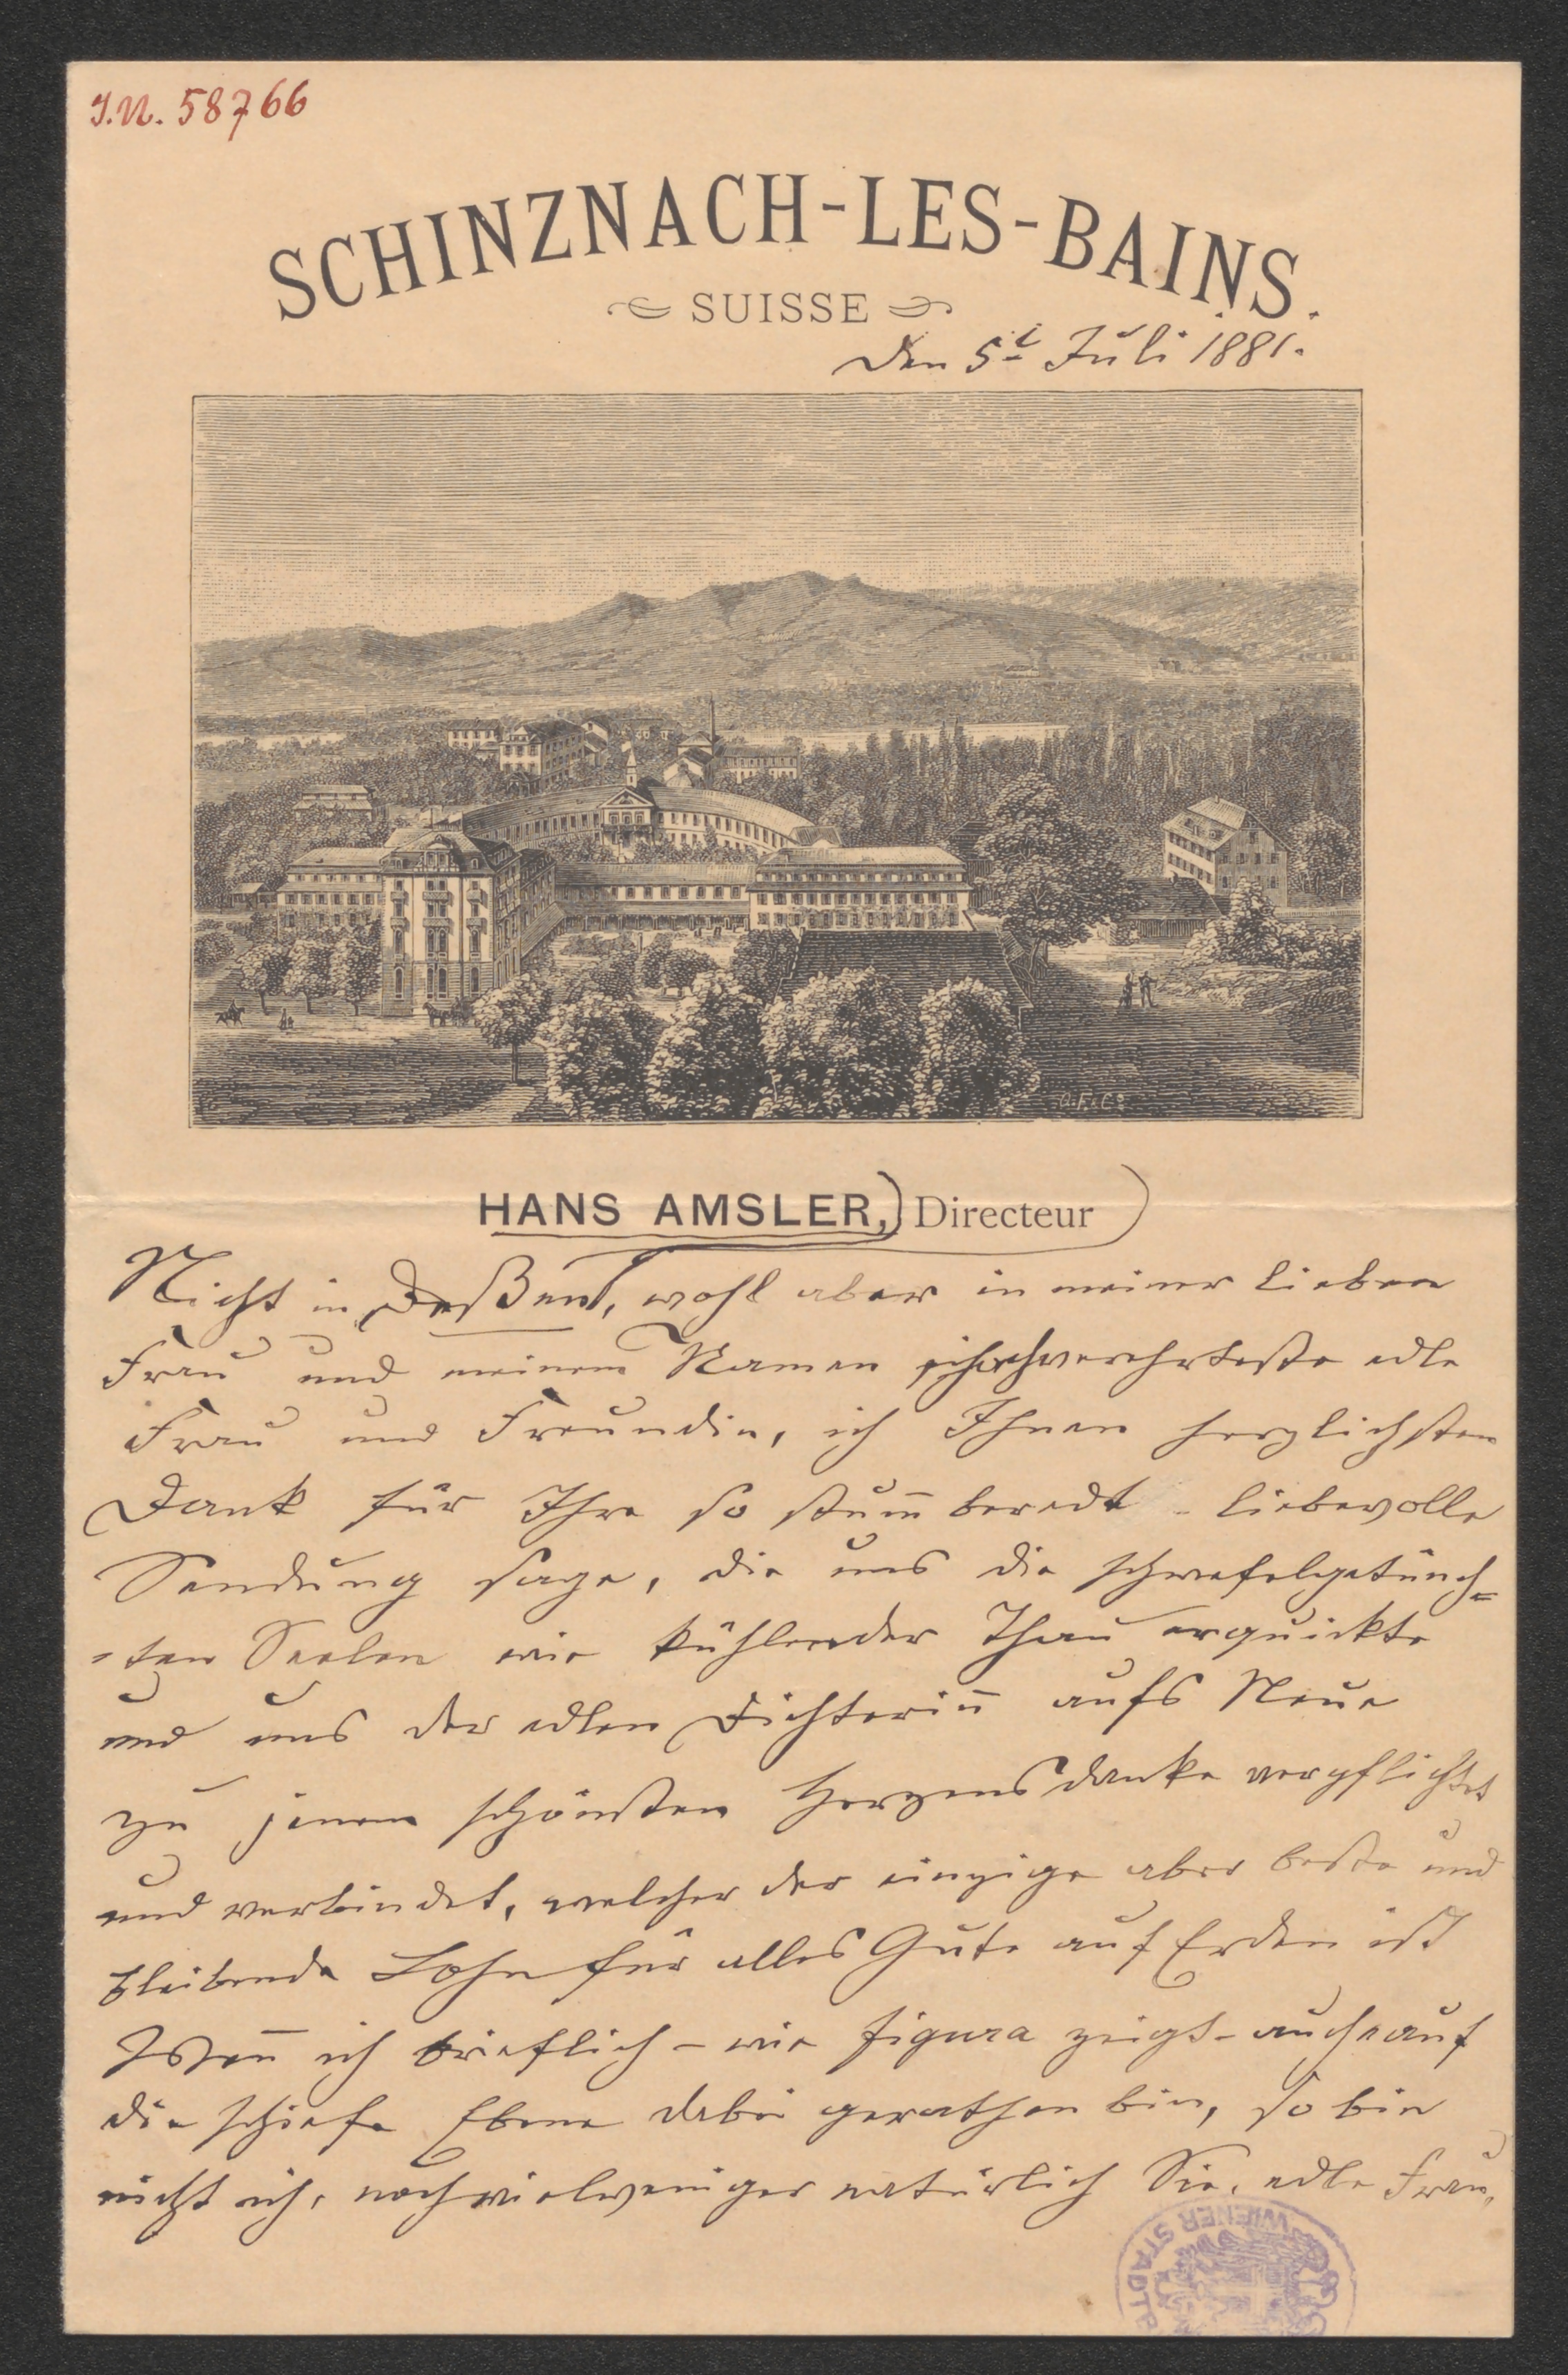 I.N. 58766
SCHINZNACH-LES-BAINS.
SUISSE
Den 5t Juli 1881.
HANS AMSLER, Directeur
Nicht in Deßen, wohl aber in meiner lieben
Frau und meinem Namen hochverehrteste edle
Frau und Freundin, ich Ihnen herzlichsten
Dank für Ihre so stum̄ beredt - liebevolle
Sendung sage, die uns die schwefelgetünch=
=ten Seelen wie kühlender Thau erquickte
und uns der edlen Dichterin̄ aufs Neue
zu jenem schönsten Herzensdanke verpflichtet
und verbindet, welcher der einzige aber beste und
bleibende Lohn für alles Gute auf Erden ist
Wen̄ ich brieflich - wie figura zeigt - auch auf
die schiefe Ebene dabei gerathen bin, so bin
nicht ich, noch vielweniger natürlich Sie, edle Frau,
WIENER STADTB